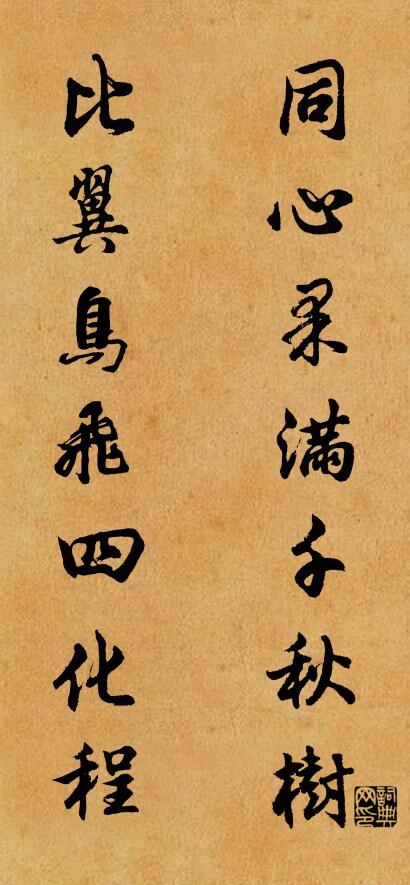 同心果满千秋樹
比翼鳥飛四化程
詞典网印